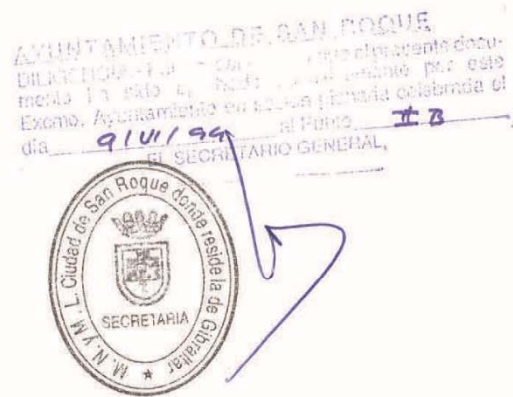 AYUNTAMIENTO DE SAN ROQUE
DILIGENCIA.- , que el presente docu-
mento ha sido por este
Excmo. Ayuntamiento en sesión plenaria celebrada el
día 9/VI/94 al Punto II B
EL SECRETARIO GENERAL,
M. N. y M. L. Ciudad de San Roque donde reside la de Gibraltar
SECRETARIA